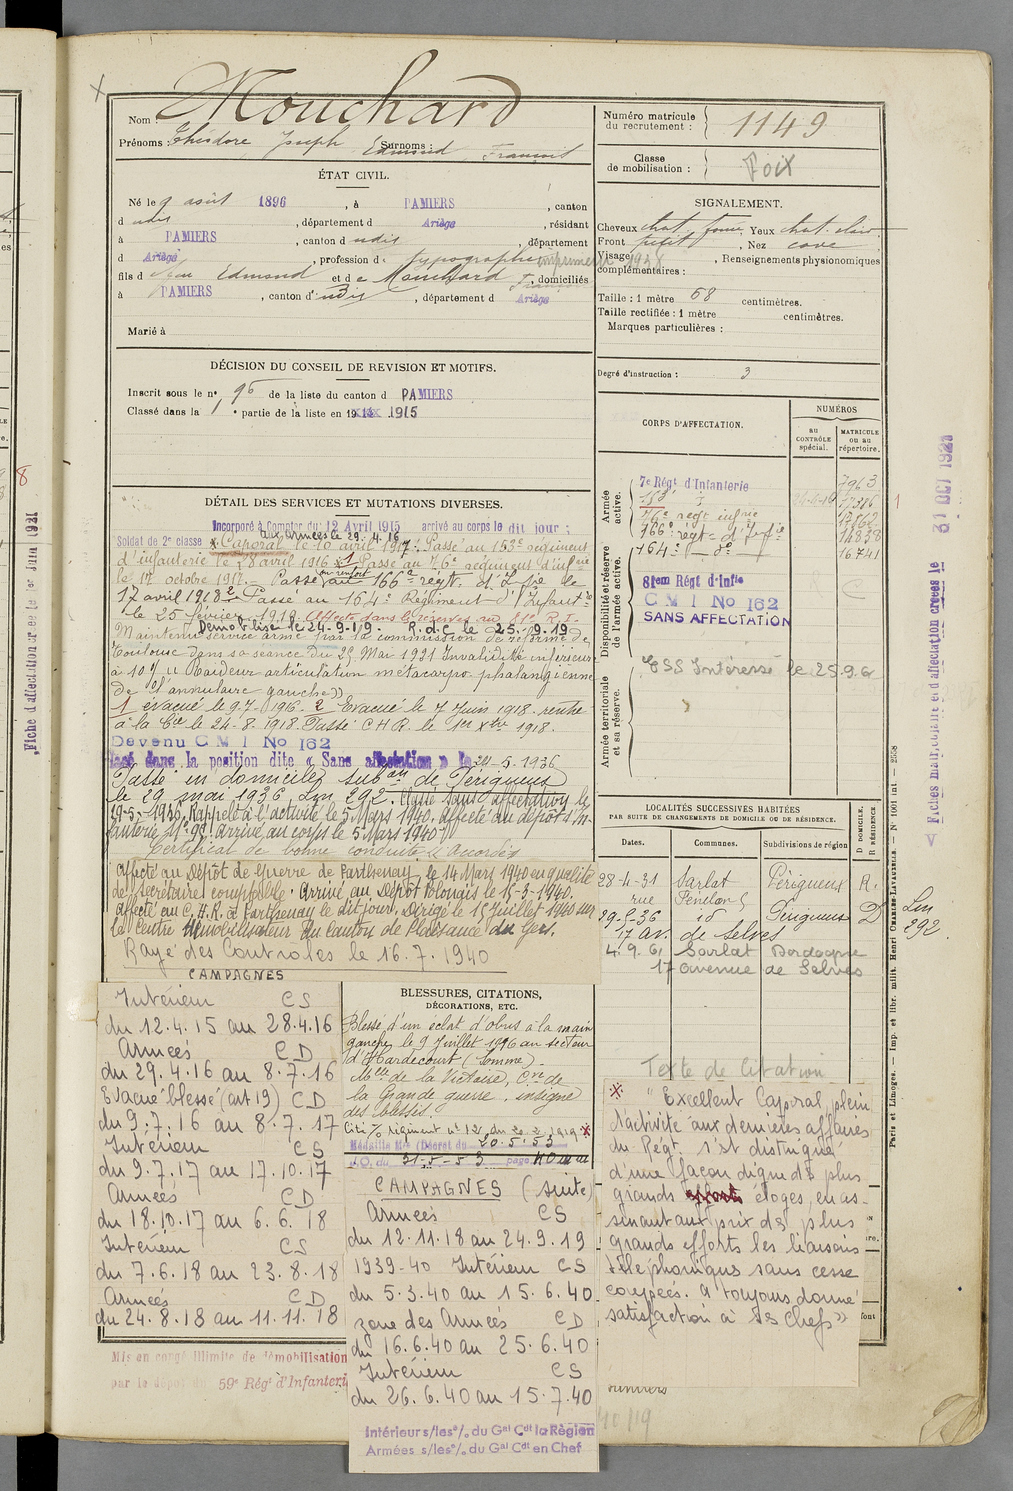 Mouchard
Nom :
Prénoms : Théodore Joseph Surnoms : Edmund François
ÉTAT CIVIL.
Né le 9 août 1896, à PAMIERS, canton
d udis, département d Ariège, résidant
à PAMIERS, canton d udis, département
d Ariège, profession de typographe imprimeur 1938
fils de Jean Edmund et de Mouchard François, domiciliés
à PAMIERS, canton d'udis, département d Ariège
Marié à
DÉCISION DU CONSEIL DE REVISION ET MOTIFS.
Inscrit sous le n° 96 de la liste du canton d PAMIERS
Classé dans la 1e partie de la liste en 1915
DÉTAIL DES SERVICES ET MUTATIONS DIVERSES.
Incorporé à Compter du 12 Avril 1915 arrivé au corps le dit jour ;
aux armées le 29. 4. 16
Soldat de 2e classe x Caporal le 10 avril 1917. Passé au 153e régiment
d'infanterie le 28 avril 1916 x1 Passé au 76e régiment d'infie
le 17 octobre 1917. — Passé en renfort au 166e régt. d'Infie le
17 avril 1918 2 Passé au 164e Régiment d'Infantie
le 25 février 1919. Affecté dans les réserves au 81e R. I.
Démobilisé le 24-9-19. R.d.C. le 25.9.19
Maintenu service armé par la commission de réforme de
Toulouse dans sa séance du 25 Mai 1921 Invalidité inférieure
à 10% "Raideur articulation métacarpo phalangienne
de l'annulaire gauche"
1 évacué le 9-7-1916 - 2 Evacué le 7 Juin 1918 - rentré
à la Cie le 24-8-1918. Passé C H R. le 1er Xbre 1918.
Devenu C M I No 162
Placé dans la position dite « Sans affectation » le 24-5-1936
Passé en domicile subon de Périgueux
le 29 mai 1936 Lm 292. Classé sans affectation le
29-5-1936. Rappelé à l'activité le 5 Mars 1940. affecté au dépôt d'In-
fanterie N° 92. arrivé au corps le 5 Mars 1940.
Certificat de bonne conduite "Accordé"
Affecté au Dépôt de Guerre de Parthenay, le 14 Mars 1940 en qualité
de secrétaire comptable. Arrivé au Dépôt Polonais le 15-3-1940.
Affecté au C.H.R. à Parthenay le dit jour. Dirigé le 15 Juillet 1940 sur
le Centre démobilisateur du Canton de Plaisance du Gers.
Rayé des Controles le 16. 7. 1940
CAMPAGNES
Intérieur CS
du 12.4.15 au 28.4.16
Armées CD
du 29.4.16 au 8.7.16
Evacué blessé (art 19) CD
du 9.7.16 au 8.7.17
Intérieur CS
du 9.7.17 au 17.10.17
Armées CD
du 18.10.17 au 6.6.18
Intérieur CS
du 7.6.18 au 23.8.18
Armées CD
du 24.8.18 au 11.11.18
Mis en congé illimité de démobilisation
par le dépôt du 59e Régt d'Infanterie
BLESSURES, CITATIONS,
DÉCORATIONS, ETC.
Blessé d'un éclat d'obus à la main
gauche le 9 Juillet 1916 au secteur
d'Hardecourt (Somme) -
Mlle de la Victoire, Cve de
la Grande guerre, insigne
des blessés.
Cité % régiment n° 121 du 20.2.1919 x
Médaille Mre (Décret du 20.5.53
J.O. du 31-5-53 page
CAMPAGNES (suite)
Armées CS
du 12.11.18 au 24.9.19
1939-40 Intérieur CS
du 5.3.40 au 15.6.40
zone des Armées CD
du 16.6.40 au 25.6.40
Intérieur CS
du 26.6.40 au 15.7.40
Intérieurs s/les o/. du Gal Cdt la Région
Armées s/les o/. du Gal Cdt en Chef
Numéro matricule du recrutement : 1149
Classe de mobilisation : Foix
SIGNALEMENT.
Cheveux chat. foncé, Yeux chat. clair,
Front petit, Nez cave
Visage, Renseignements physionomiques
complémentaires :
Taille : 1 mètre 68 centimètres.
Taille rectifiée : 1 mètre centimètres.
Marques particulières :
Degré d'instruction : 3
CORPS D'AFFECTATION.
NUMÉROS
au CONTRÔLE spécial.
MATRICULE ou au répertoire.
Armée active.
7e Régt d'Infanterie 7963
153e
76e régt infie
166e régt d'Infie
164e do 16741
Disponibilité et réserve de l'armée active.
81em Régt d'Infie
C M I No 162
SANS AFFECTATION
C
Armée territoriale et sa réserve.
ESS Intéressé le 25.9.6
LOCALITÉS SUCCESSIVES HABITÉES
PAR SUITE DE CHANGEMENTS DE DOMICILE OU DE RÉSIDENCE.
Dates. Communes. Subdivisions de région D DOMICILE. R RÉSIDENCE
28-4-31 Sarlat Périgueux R.
rue Fénelon 5
29-5-36 id Périgueux D
17 av. de Selves
4.9.61 Sarlat Dordogne
17 avenue de Selves
Lm 292
Texte de Citation
x "Excellent Caporal, plein
d'activité aux dernières affaires
du Régt. s'est distingué
d'une façon digne des plus
grands éloges, en as-
surant aux prix de plus
grands efforts les liaisons
téléphoniques sans cesse
coupées. A toujours donné
satisfaction à ses chefs"
Fiche d'affectation créée le 1er Juin 1921
Fiches matricules et d'affectation créées le 31 OCT 1927
Paris et Limoges. — Imp. et libr. milit. Henri CHARLES-LAVAUZELLE. — N° 1001 int